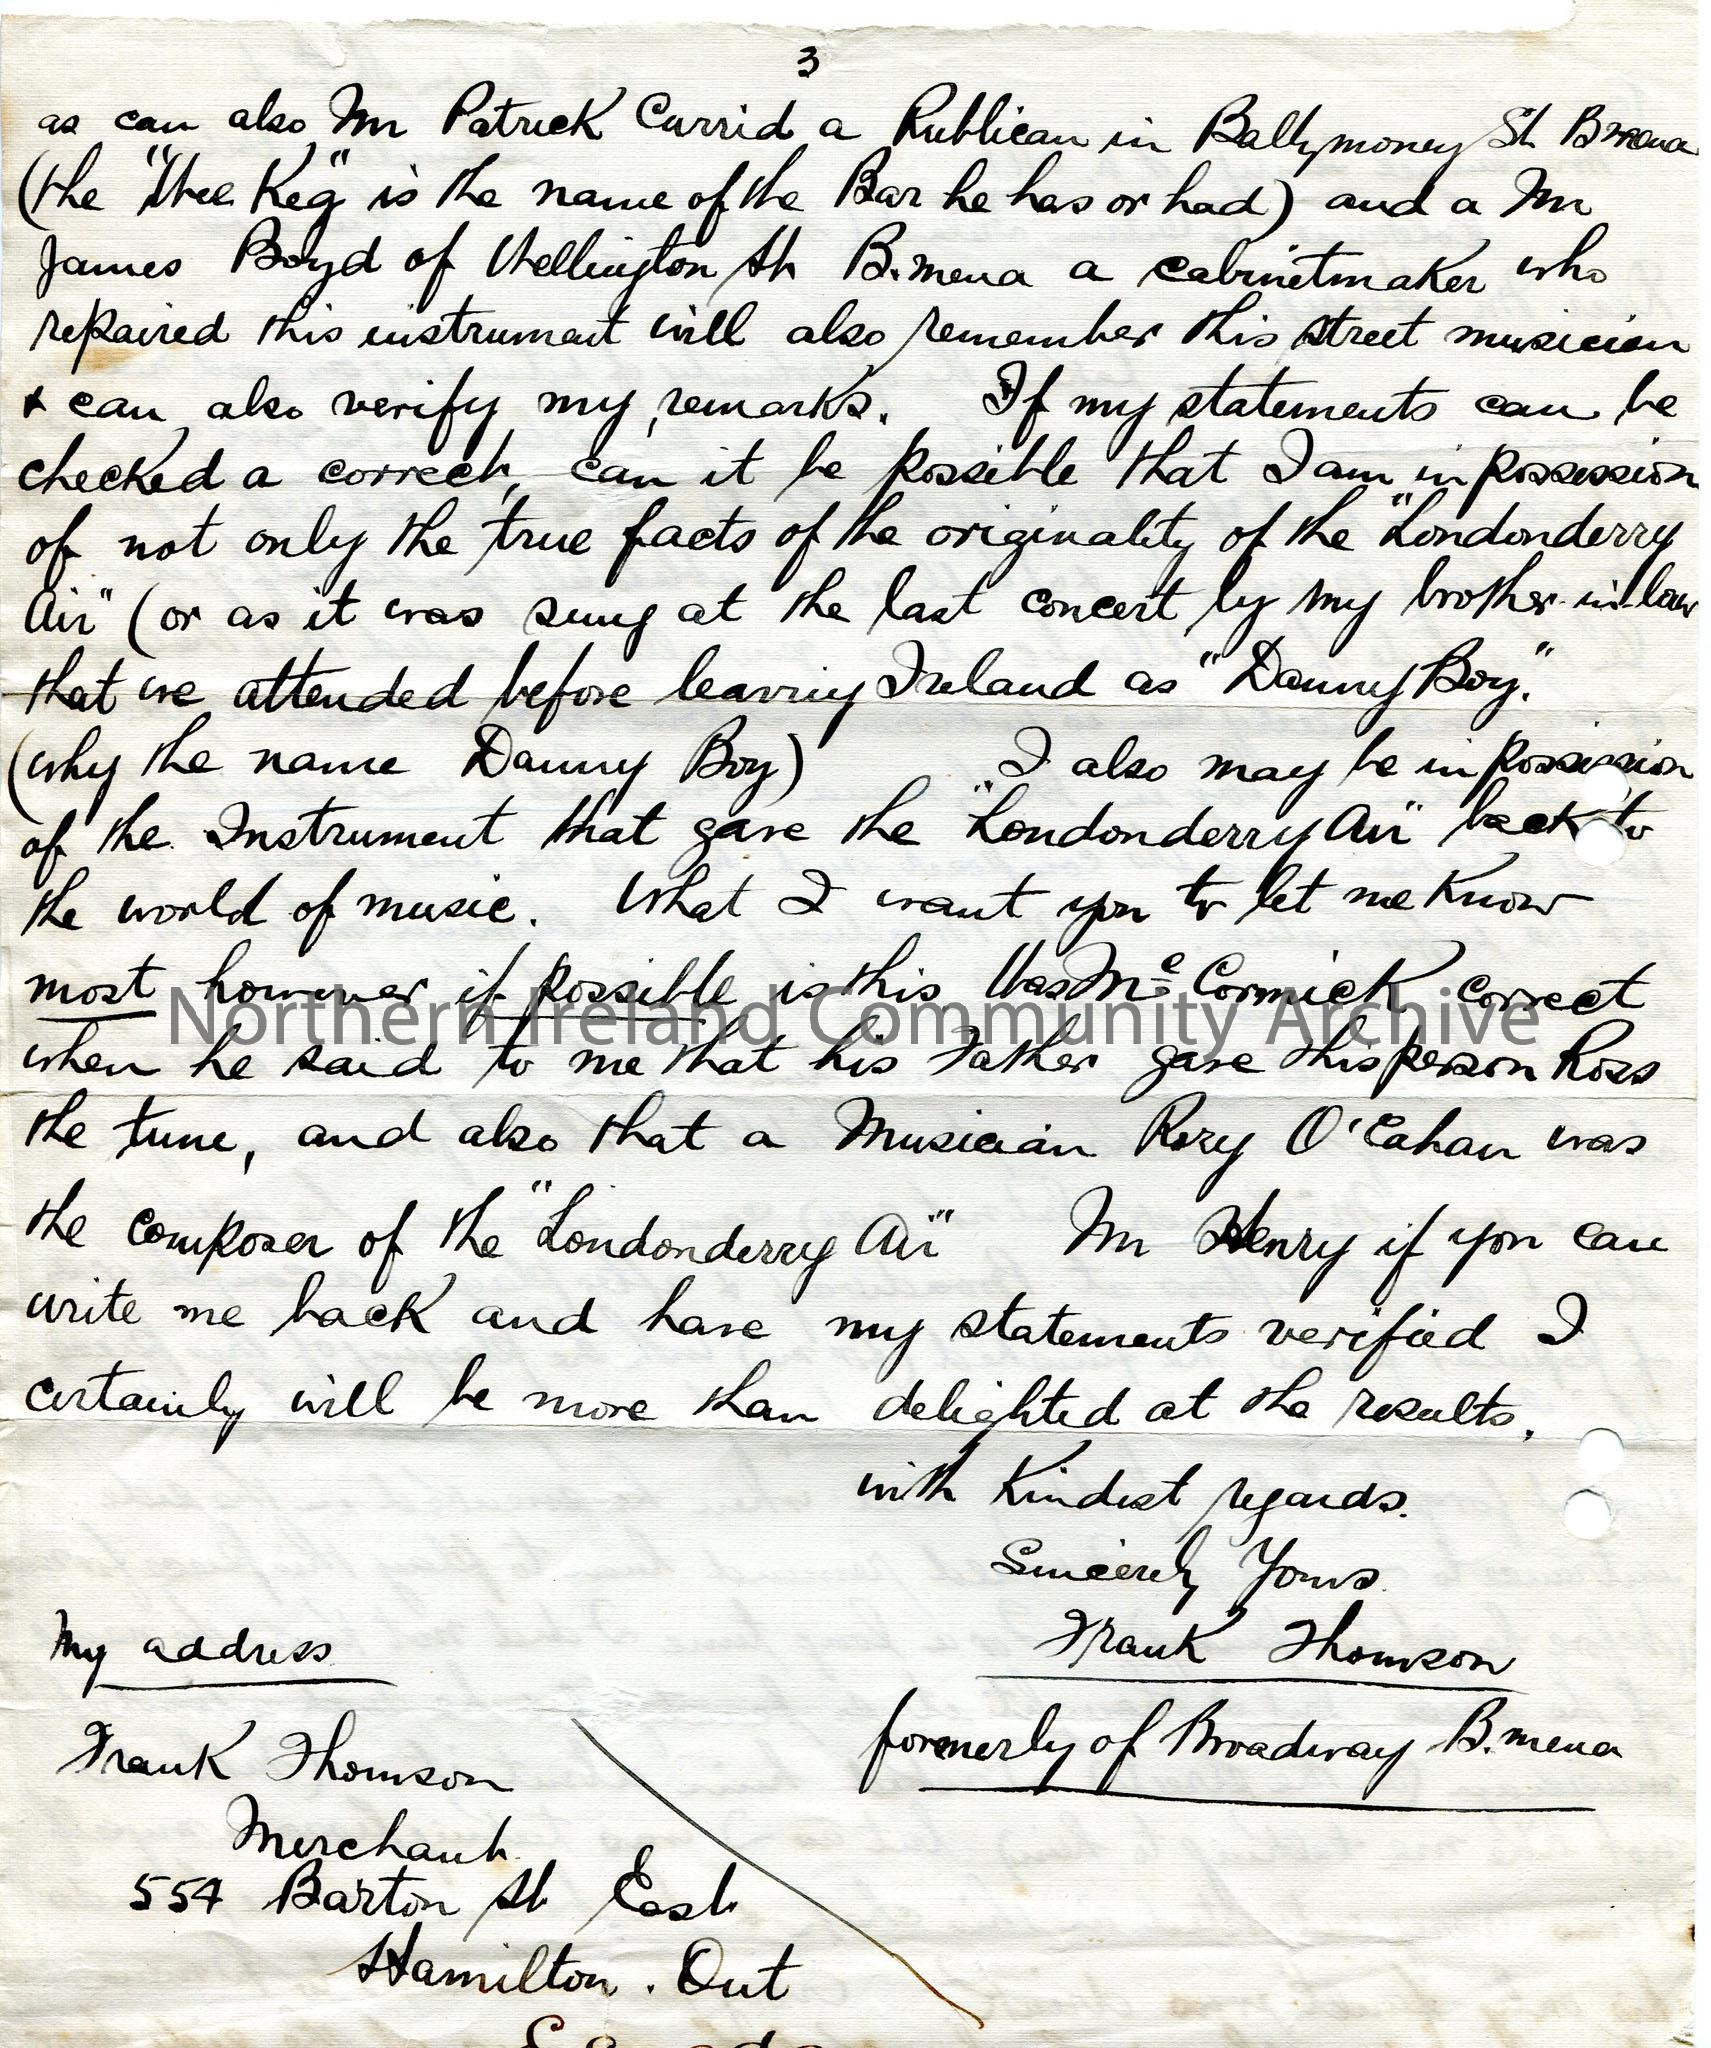 3
as can also Mr Patrick Currid a Publican in Ballymoney St B.mena
(the "Wee Keg" is the name of the Bar he has or had) and a Mr
James Boyd of Wellington St B.mena a cabinetmaker who
repaired this instrument will also remember this street musician
& can also verify my remarks. If my statements can be
checked a correct, can it be possible that I am in possession
of not only the true facts of the originality of the "Londonderry
Air" (or as it was sung at the last concert by my brother-in-law
that we attended before leaving Ireland as "Danny Boy."
(why the name Danny Boy) I also may be in possession
of the Instrument that gave the "Londonderry Air" back to
the world of music. What I want you to let me know
most however if possible is this Was Mc Cormick correct
Northern Ireland Community Archive
when he said to me that his Father gave this person Ross
the tune, and also that a Musician Rory O'Cahan was
the composer of the "Londonderry Air" Mr Henry if you can
write me back and have my statements verified I
certainly will be more than delighted at the results.
with Kindest regards.
Sincerely Yours.
Frank Thomson
formerly of Broadway B.mena
My address
Frank Thomson
Merchant.
554 Barton St East.
Hamilton. Ont
Canada